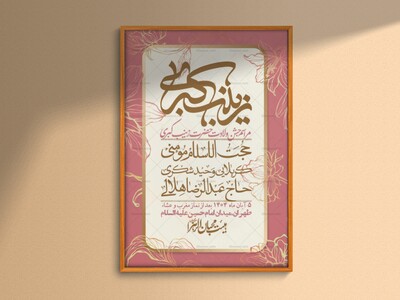 زینب کبری
مراسم جشن ولادت حضرت زینب کبری
حجت الاسلام مومنی
کربلایی وحید شکری
حاج عبدالرضا هلالی
۵ آبان ماه ۱۴۰۴ بعد از نماز مغرب و عشاء
طهران، میدان امام حسین علیه السلام
هیئت محبان الزهرا